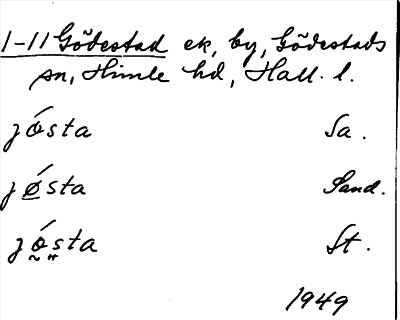 1-11 Gödestad ek, by, Gödestads
sn, Himle hd, Hall. l.
jósta Sa.
jǿ̲sta Sand.
jó̰sta St.
1949